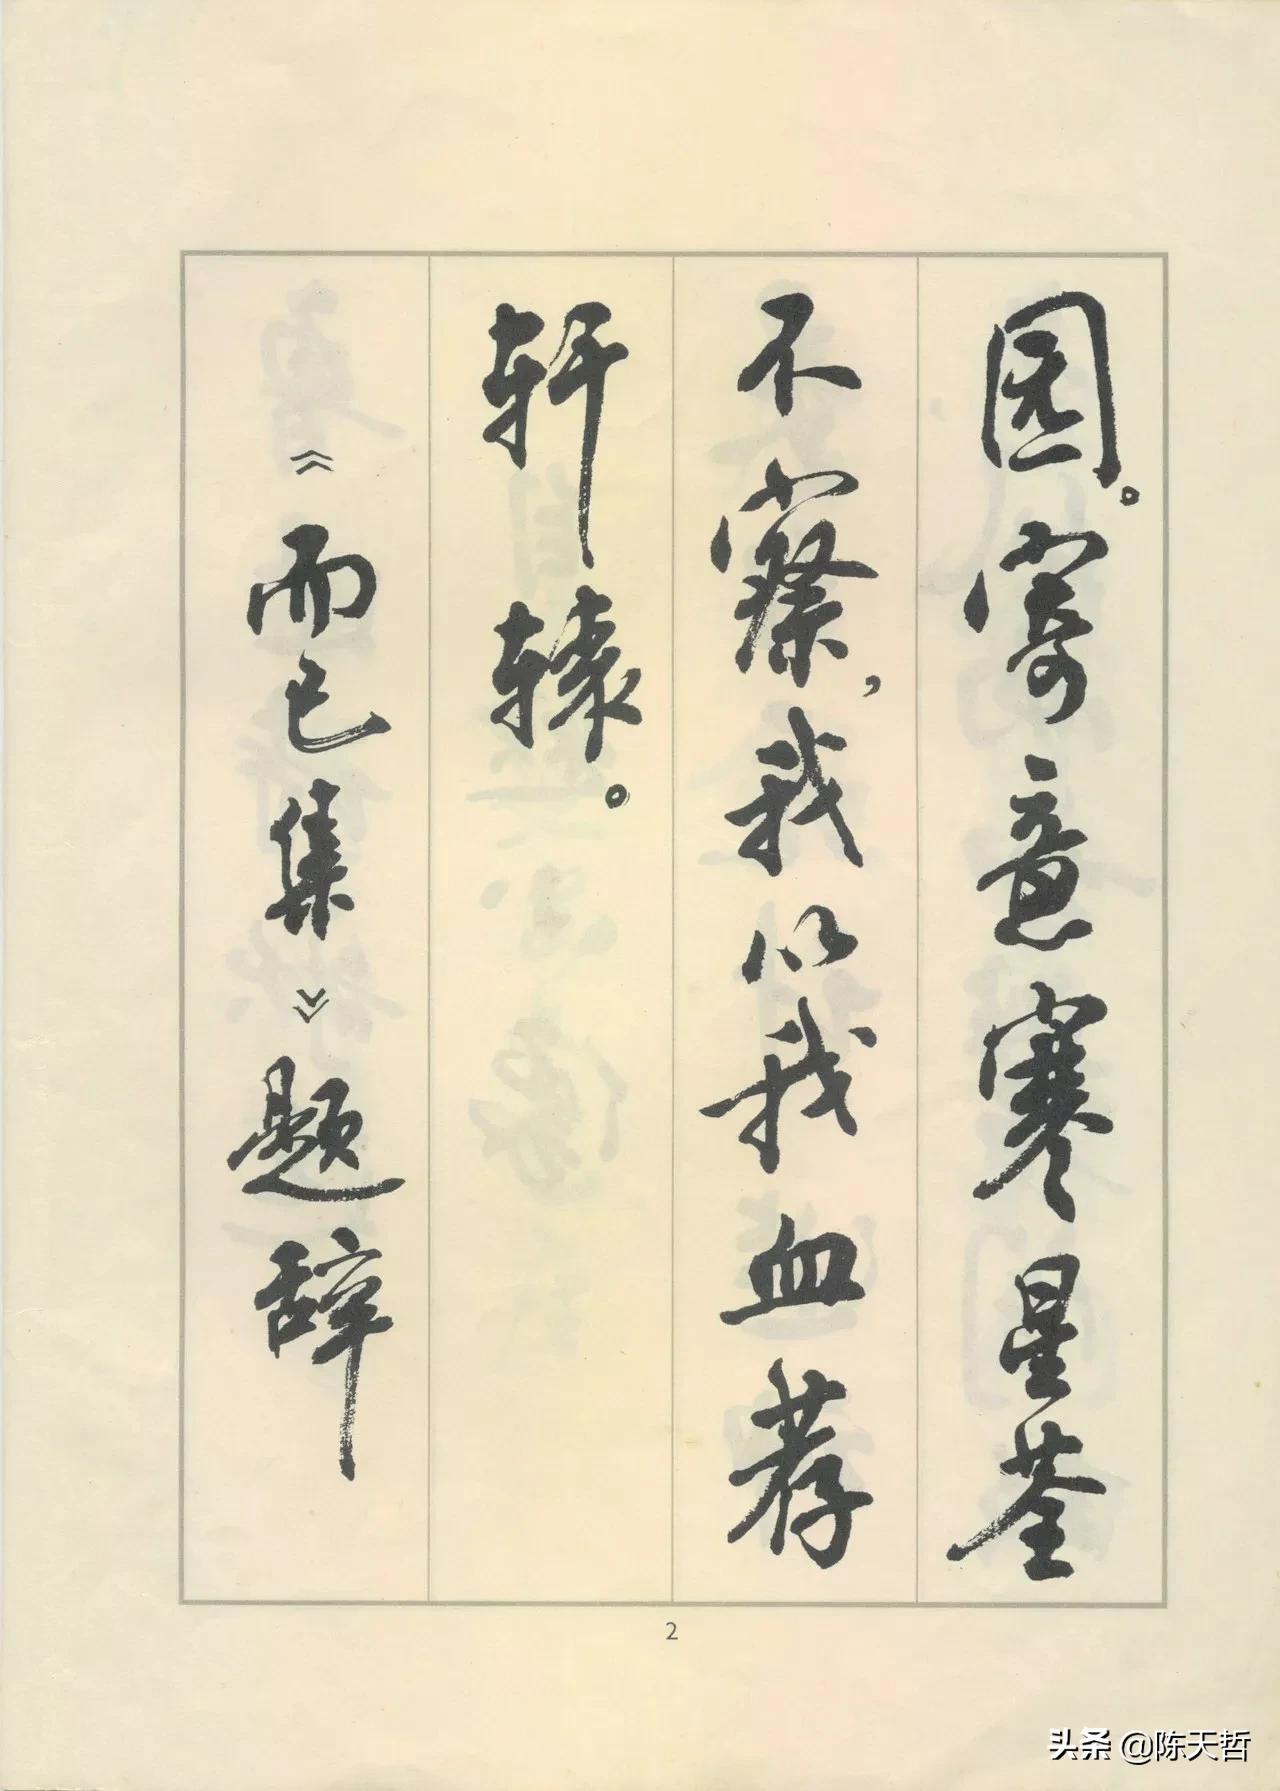 园。寄意寒星荃
不察，我以我血荐
轩辕。
《而已集》题辞
2
头条 @陈天哲